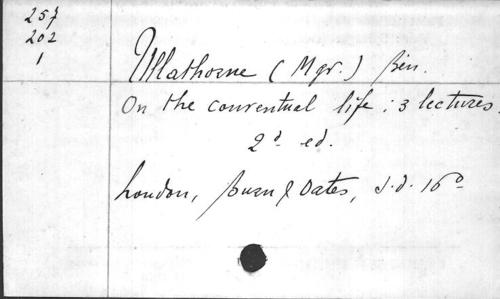 257
202
1
Ullathorne (Mgr.) Ben.
On the conventual life : 3 lectures.
2d ed.
London, Burn & Oates, s.d. 16o